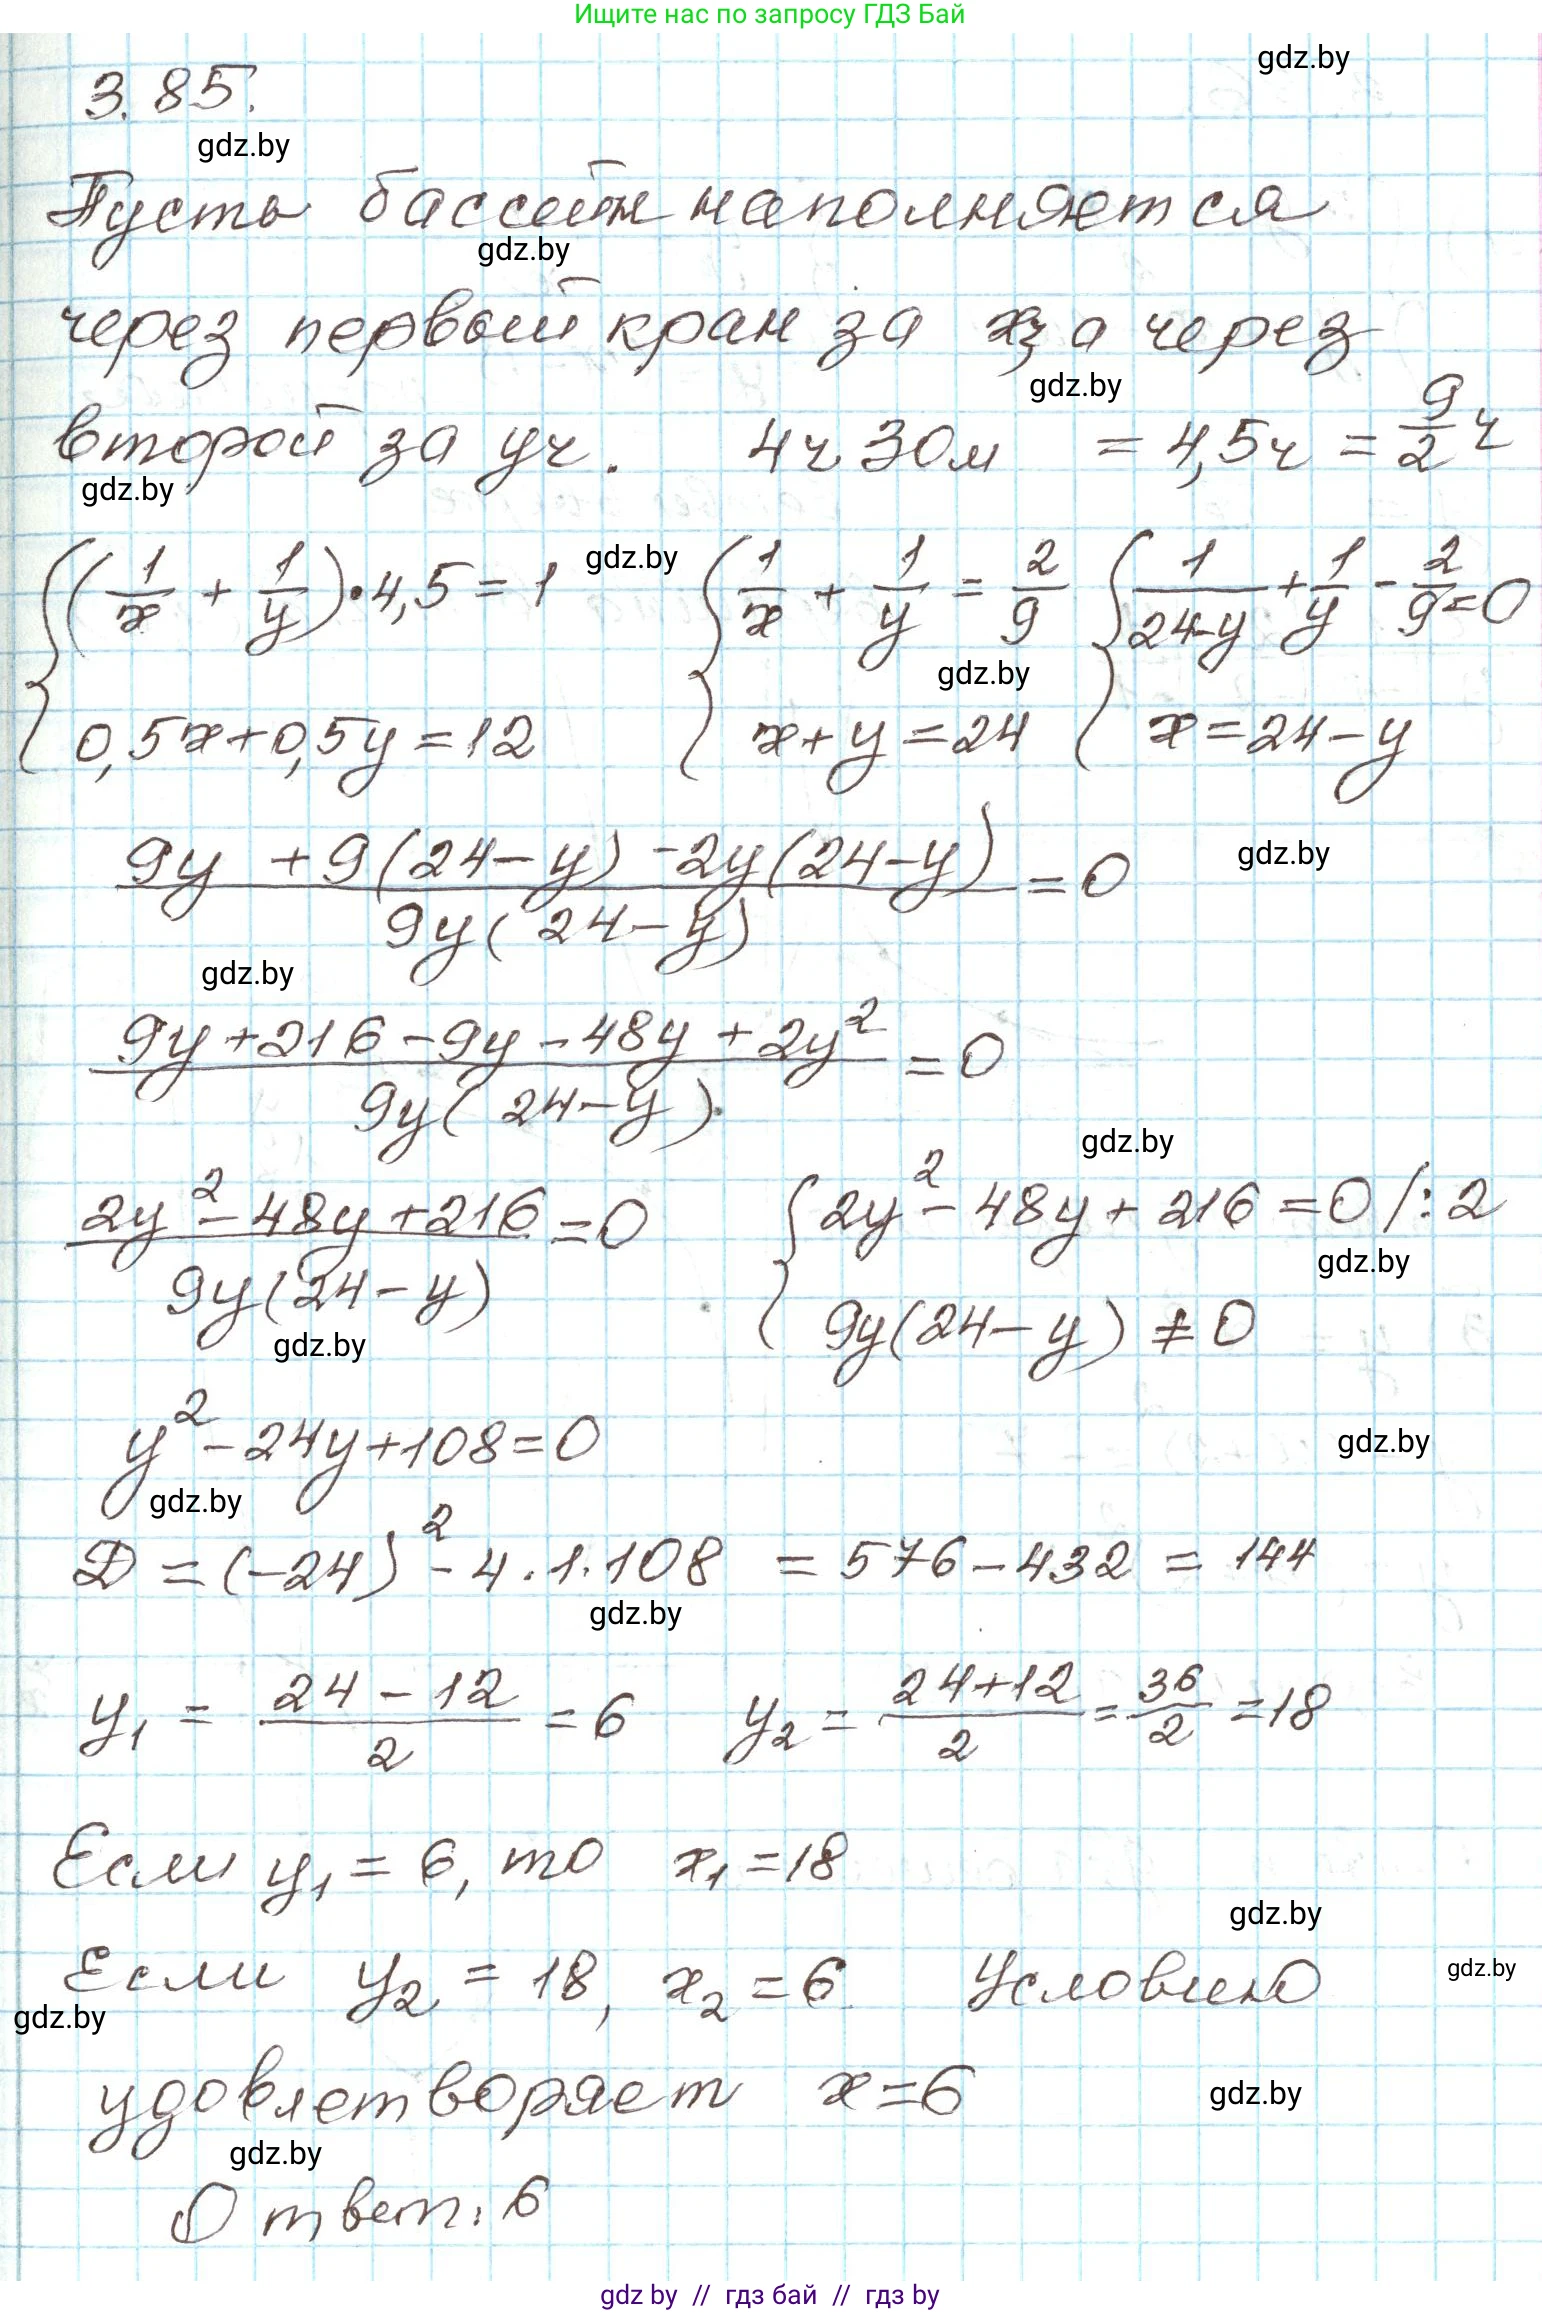 Ищите нас по запросу ГДЗ Бай
gdz.by
3.85.
gdz.by
Пусть бассейн наполняется
gdz.by
через первый кран за xч а через
gdz.by
второй за yч. 4ч 30м = 4,5ч = 9/2 ч
gdz.by
{(1/x + 1/y)·4,5=1 {1/x + 1/y = 2/9 {1/(24-y) + 1/y - 2/9 = 0
gdz.by
gdz.by
0,5x+0,5y=12 x+y=24 x=24-y
(9y+9(24-y)-2y(24-y))/(9y(24-y)) = 0
gdz.by
gdz.by
(9y+216-9y-48y+2y²)/(9y(24-y)) = 0
gdz.by
(2y²-48y+216)/(9y(24-y)) = 0 {2y²-48y+216=0 /:2
gdz.by
9y(24-y)≠0
gdz.by
y²-24y+108=0
gdz.by
gdz.by
D=(-24)²-4·1·108 = 576-432 = 144
gdz.by
y₁ = (24-12)/2 = 6 y₂ = (24+12)/2 = 36/2 = 18
Если y₁=6, то x₁=18
gdz.by
Если y₂=18, x₂=6 Условию
gdz.by
gdz.by
удовлетворяет x=6
gdz.by
gdz.by
Ответ: 6
gdz by // гдз бай // гдз by